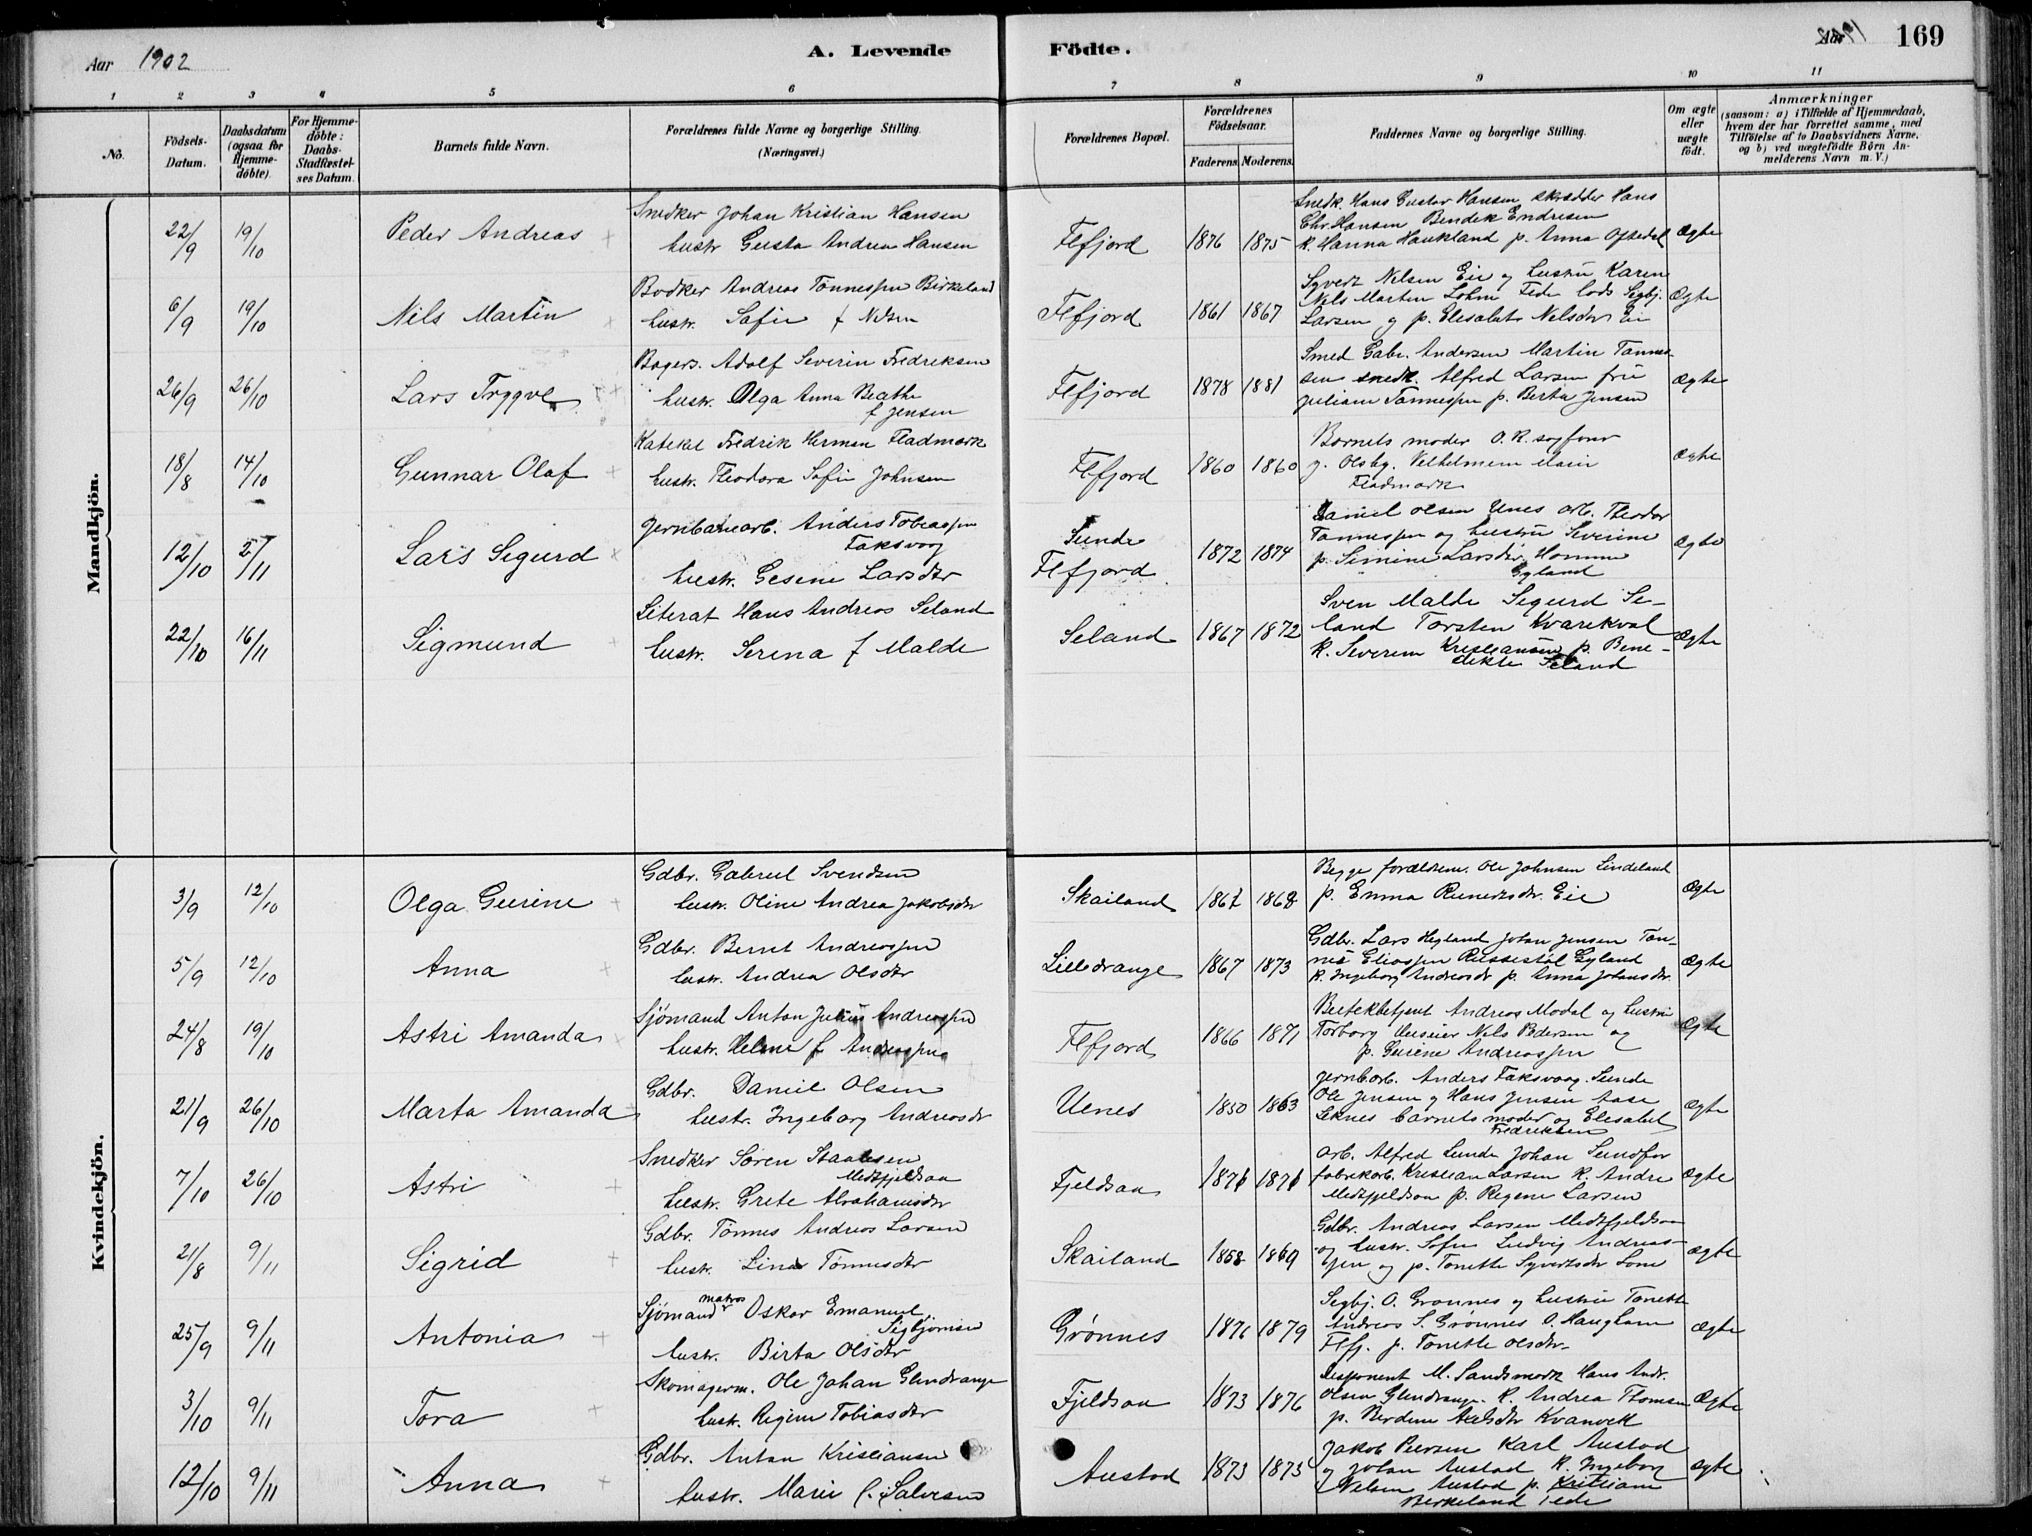 Aar 1902
A. Levende Födte.
Aar 169
1 2 3 4 5 6 7 8 9 10 11
No.
Födsels-Datum.
Daabsdatum (ogsaa for Hjemme-döbte).
For Hjemme-döbte: Daabs-Stadfæstel-ses Datum.
Barnets fulde Navn.
Forældrenes fulde Navne og borgerlige Stilling.
(Næringsvei.)
Forældrenes Bopæl.
Forældrenes Födselsaar.
Faderens. Moderens.
Faddernes Navne og borgerlige Stilling.
Om ægte eller uægte födt.
Anmærkninger
(saasom: a) i Tilfælde af Hjemmedaab, hvem der har forrettet samme, med Tilföielse af to Daabsvidners Navne. og b) ved uægtefödte Börn An-melderens Navn m. V.)
Mandkjön.
22/9 19/10 Peder Andreas
Snedker Johan Kristian Hansen
hustr Gusta Andrea Hansen
Flfjord 1876 1875
Snedk. Hans Gustav Hansen skrædder Hans
Chr. Hansen Bendik Endresen
K. Hanna Haukland p. Anna Oftedal
Ægte
6/9 19/10 Nils Martin
Bødker Andreas Tønnessen Birkeland
hustr. Sofie f Nilsen
Flfjord 1861 1867
Syvert Nilsen Eie og hustru Karen
Nils Martin Fede lods Sigbj.
Larsen og p. Elisabet Nelsdtr Eie
Ægte
26/9 26/10 Lars Trygve
Bagers. Adolf Severin Fredriksen
hustr. Olga Anna Beathe
f Jensen
Flfjord 1878 1881
Smed Gabr. Andersen Martin Tønnes-
sen snedk. Alfred Larsen fru
Juliane Tønnessen p. Berta Jensen
Ægte
18/8 14/10 Gunnar Olaf
Kateket Fredrik Herman Fladmark
hustr. Theodora Sofie Johnsen
Flfjord 1860 1860
Barnets moder O.R. sagfører
Fladmark
Ægte
12/10 2/11 Lars Sigurd
Jernbanearb. Anders Tobiassen
Faksvaag
hustr. Gesine Larsdtr
Sunde
Flfjord 1872 1874
Daniel Olsen Uenes arb. Theodor
Tønnessen og hustru Severine
p. Simine Larsdtr Homme
Gyland
Ægte
22/10 16/11 Sigmund
Literat Hans Andreas Seland
hustr. Serina f Malde
Seland 1867 1872
Sven Malde Sigurd Se-
land Torsten Kvarekval
K. Severine Kristiansen p. Bene-
dikte Seland
Ægte
Kvindekjön.
3/9 12/10 Olga Gurine
Gdbr. Gabriel Svendsen
hustr. Oline Andrea Jakobsdtr
Skailand 1862 1868
Begge forældrene. Ole Johnsen Lindeland
p. Emma Reinertsdtr. Eie
Ægte
5/9 12/10 Anna
Gdbr. Bernt Andreassen
hustr. Andrea Olsdtr
Lilledrange 1867 1873
Gdbr. Lars Hegland Johan Jensen Tøn-
nes Eliassen Russestøl Gyland
K. Ingeborg Andreasdtr p. Anna Johansdtr.
Ægte
24/8 19/10 Astri Amanda
Sjømand Anton Julius Andreassen
hustr. Helene f Andreassen
Flfjord 1866 1871
Butekbetjent Andreas Modal og hustru
Torborg Nils Pedersen og
p. Gurine Andreassen
Ægte
21/9 26/10 Marta Amanda
Gdbr. Daniel Olsen
hustr. Ingeborg Andreasdtr
Uenes 1850 1863
Jernbarb. Anders Faksvaag. Sunde
Ole Jensen og Hans Jensen Aase
Eknes barnets moder og Elisabet
Fredriksen
Ægte
7/10 26/10 Astri
Snedker Søren Staalesen
Midtfjeldsaa
hustr. Grete Abrahamsdtr
Fjeldsaa 1871 1871
Arb. Alfred Sunde Johan Sundfør
fabrikarb. Kristian Larsen K. Andre
Midtfjeldsaa p. Regine Larsen
Ægte
21/8 9/11 Sigrid
Gdbr. Tønnes Andreas Larsen
hustr. Lina Tønnesdtr
Skailand 1858 1869
Gdbr. Andreas Larsen Midtfjeldsaa
og hustr. Sofie Ludvig Andreas-
sen og p. Tonette Syvertsdtr Lone
Ægte
25/9 9/11 Antonia
Sjømand matros Oskar Emanuel
Sigbjørnsen
hustr. Birta Olsdtr
Grønnes 1876 1879
Sigbj. O. Grønnes og hustru Tonette
Andreas S. Grønnes O. Haughom
Flfj. p. Tonette Olsdtr.
Ægte
3/10 9/11 Tora
Skomagerm. Ole Johan Glendrange
hustr. Regine Tobiasdtr
Fjeldsaa 1873 1876
Disponent M. Sandsmark Hans Andr.
Olsen Glendrange. K. Andrea Thomsen
p. Berdine Axelsdtr Kvanvik
Ægte
12/10 9/11 Anna
Gdbr. Anton Kristiansen
hustr. Marie f. Salvesen
Austad 1873 1873
Jakob Peersen Karl Austad
og Johan Austad K. Ingeborg
Nelsen Austad p. Kristiane
Berkeland Fede
Ægte